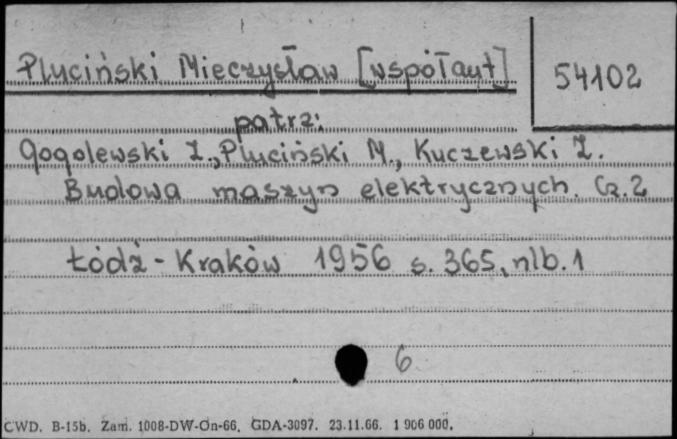 Pluciński Mieczysław [współaut]
54102
patrz:
Gogolewski Z., Pluciński M., Kuczewski Z.
Budowa maszyn elektrycznych. Cz. 2
Łódź - Kraków 1956 s. 365, nlb. 1
6
CWD. B-15b. Zam. 1008-DW-On-66. GDA-3097. 23.11.66. 1 906 000.